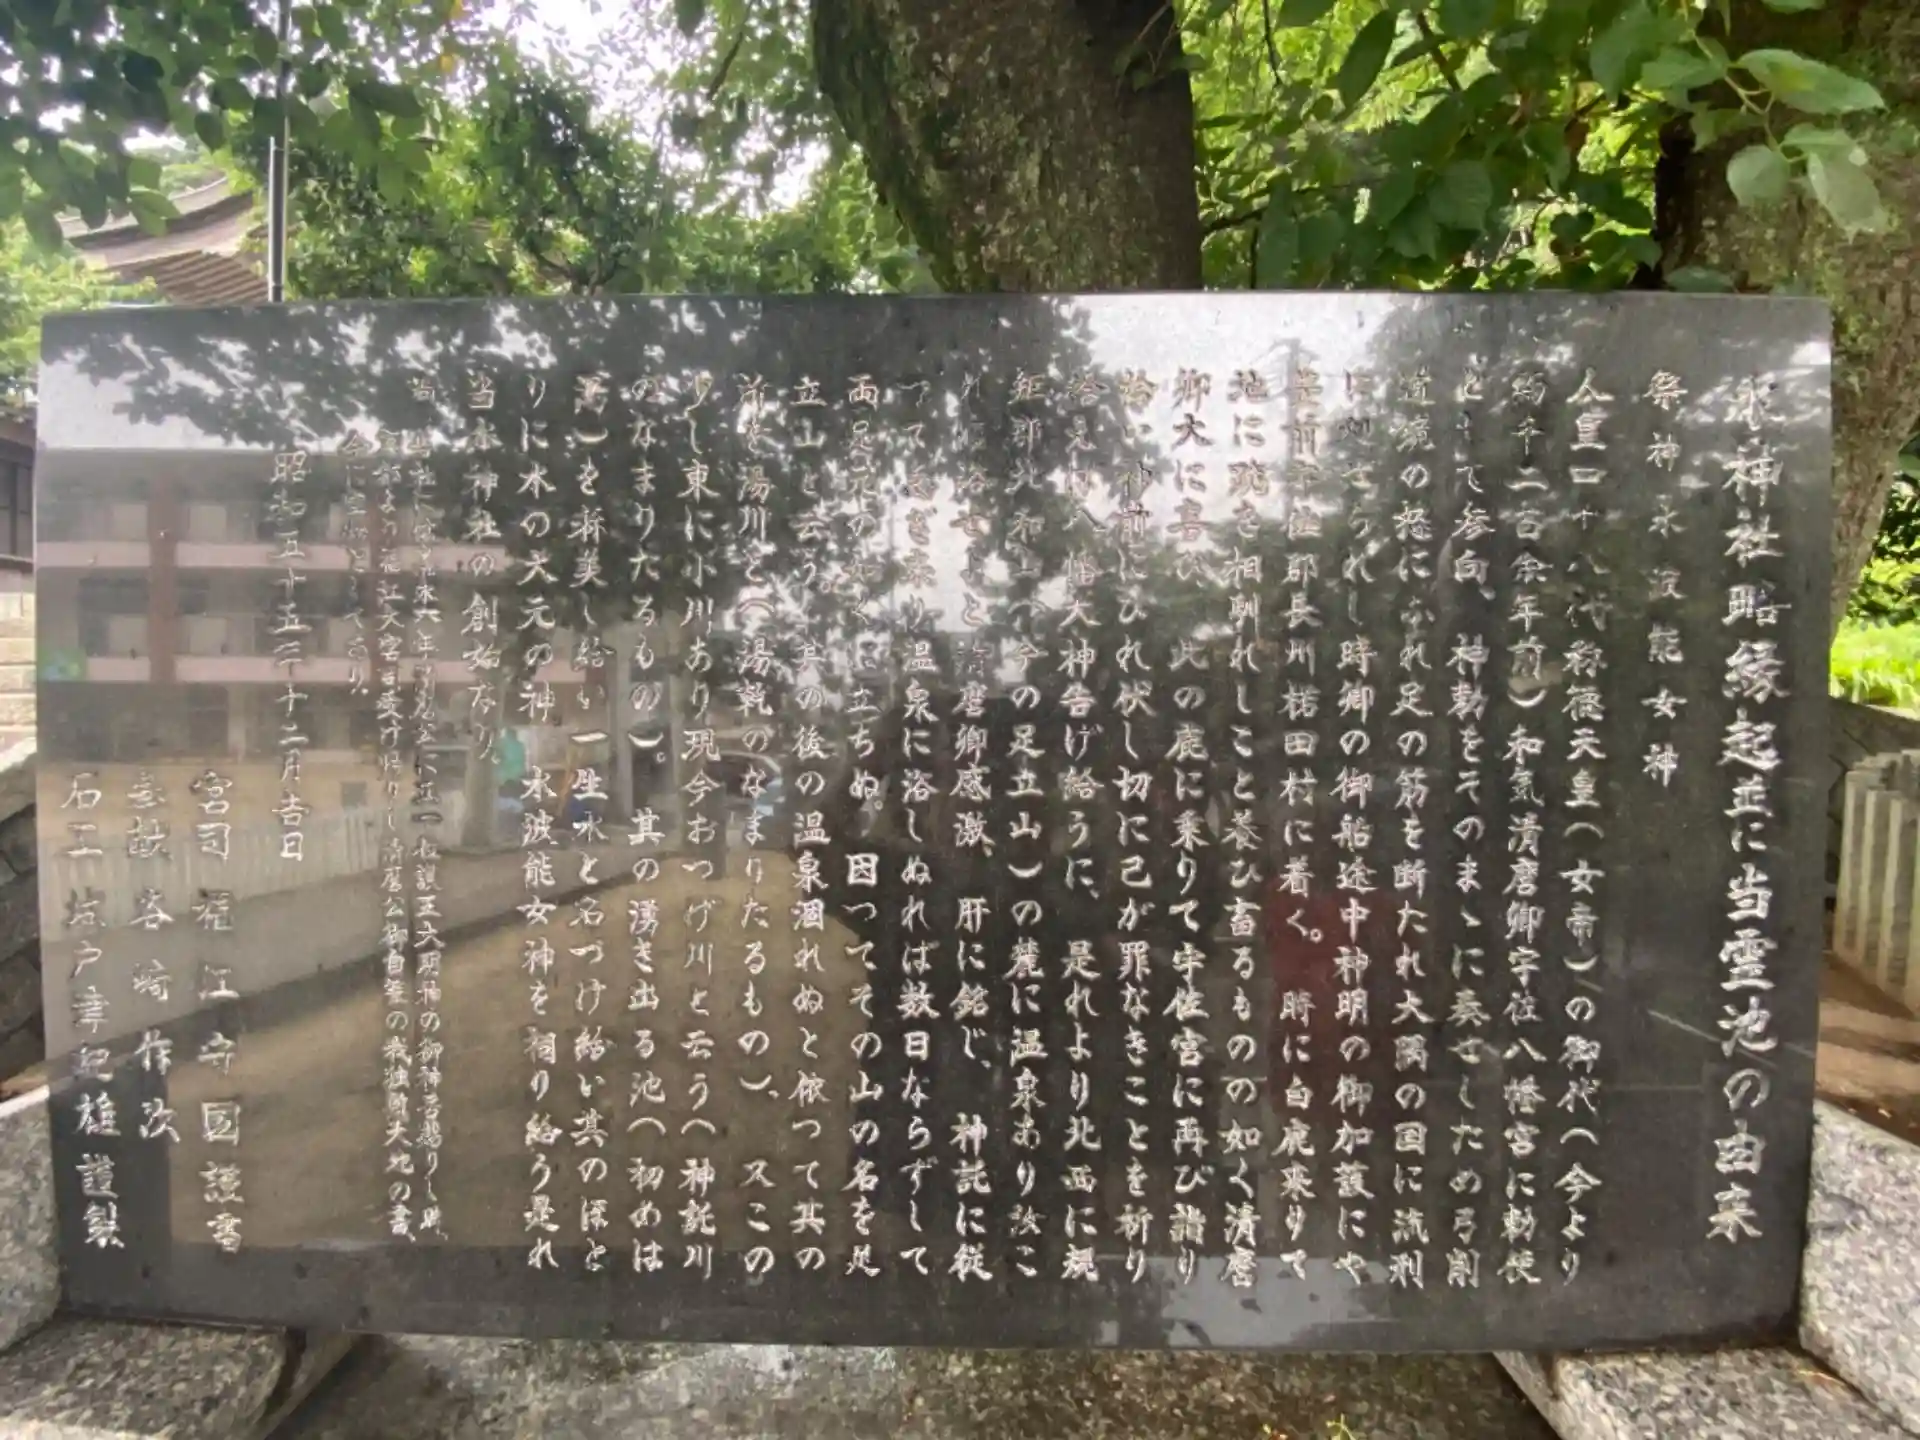 水神社略縁起並に当霊池の由来
祭神水波能女神
人皇四十八代称徳天皇(女帝)の御代(今より
約千二百余年前)和気清麿卿宇佐八幡宮に勅使
として参向、神勅をそのまゝに奏せしため弓削
道鏡の怒にふれ足の筋を断たれ大隅の国に流刑
に処せられし時卿の御船途中神明の御加護にや
豊前宇佐郡長州楉田村に着く。時に白鹿来りて
地に跪き相馴れしこと養ひ畜るものの如く清麿
卿大に喜び、此の鹿に乗りて宇佐宮に再び詣り
給い神前にひれ伏し切に己が罪なきことを祈り
給え八幡大神告げ給うに、是れより北西に規
矩郡北和山(今の足立山)の麓に温泉あり汝こ
れに浴せよと清麿卿感激、肝に銘じ、神託に従
つて急ぎ来り温泉に浴しぬれば数日ならずして
両足元の如く立ちぬ。因つてその山の名を足
立山と云う其の後の温泉涸れぬと依つて其の
所を湯川と(湯乾のなまりたるもの)、又この
少し東に小川あり現今おつげ川と云う(神託川
のなまりたるもの)。其の湧き出る池(初めは
)を称美し給い一生水と名づけ給い其のほと
りに水の大元の神水波能女神を祠り給う是れ
当水神社の創始なり。
当社には嘉永六年に正一位護王大明神の御神号越りし時、
京都より福江大宮司受け帰りし清麿公御自筆の我独慚天地の書、
今に宝物として在り。
昭和五十五年十二月吉日
宮司 福江守国謹書
岩崎作次
石工 坂戸幸記雄謹製